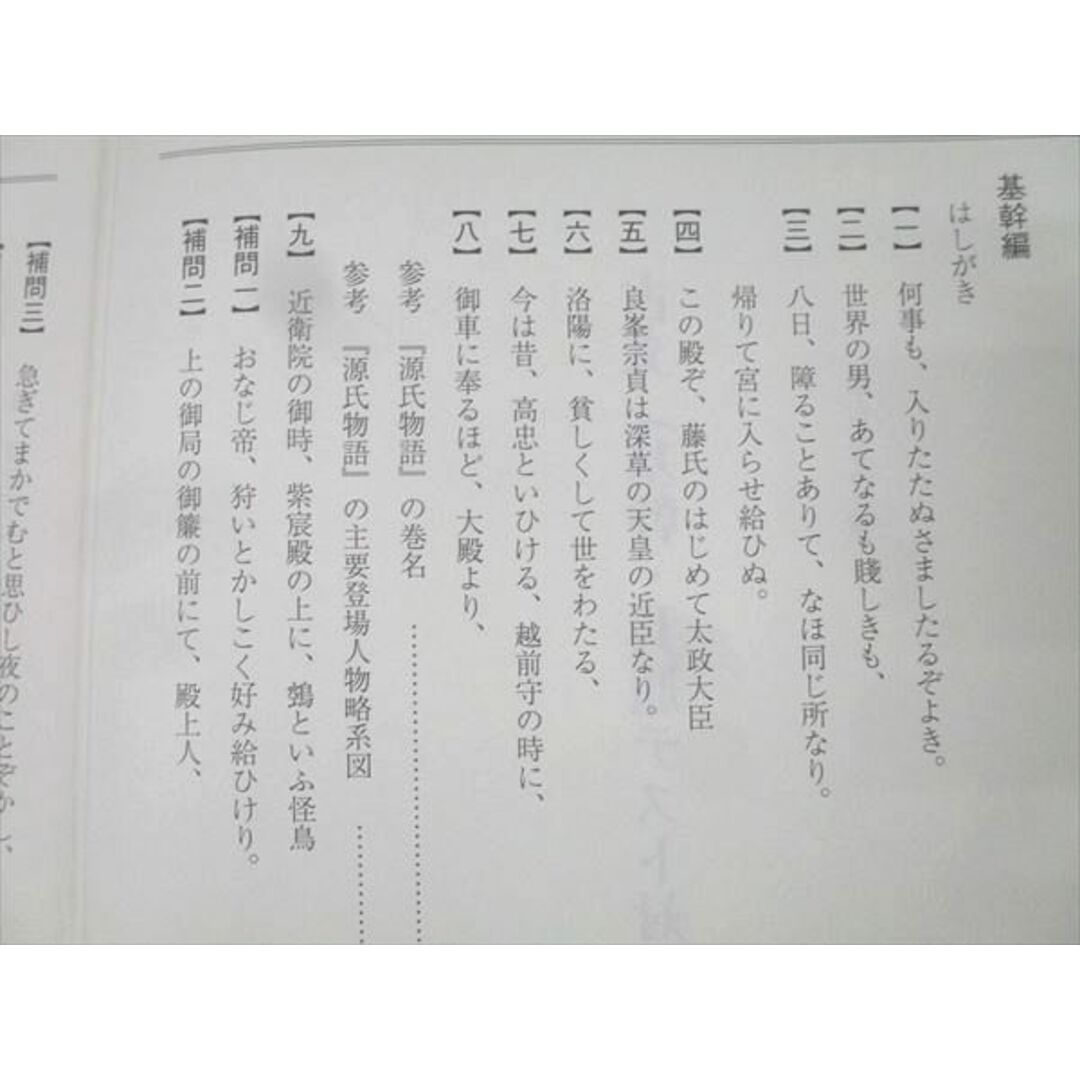 基幹編
はしがき
【一】 何事も、入りたたぬさましたるぞよき。
【二】 世界の男、あてなるも賤しきも、
【三】 八日、障ることありて、なほ同じ所なり。
帰りて宮に入らせ給ひぬ。
【四】 この殿ぞ、藤氏のはじめて太政大臣
【五】 良峯宗貞は深草の天皇の近臣なり。
【六】 洛陽に、貧しくして世をわたる、
【七】 今は昔、高忠といひける、越前守の時に、
【八】 御車に奉るほど、大殿より、
参考 『源氏物語』の巻名 ……………………
参考 『源氏物語』の主要登場人物略系図 ………
【九】 近衛院の御時、紫宸殿の上に、鵼といふ怪鳥
【補問一】 おなじ帝、狩いとかしこく好み給ひけり。
【補問二】 上の御局の御簾の前にて、殿上人、
【補問三】 急ぎてまかでむと思ひし夜のことぞかし、